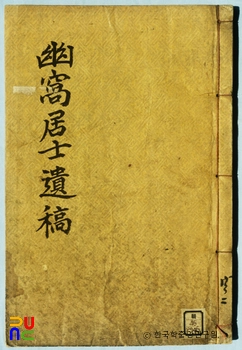 幽窩居士遺稿
한국학중앙연구원